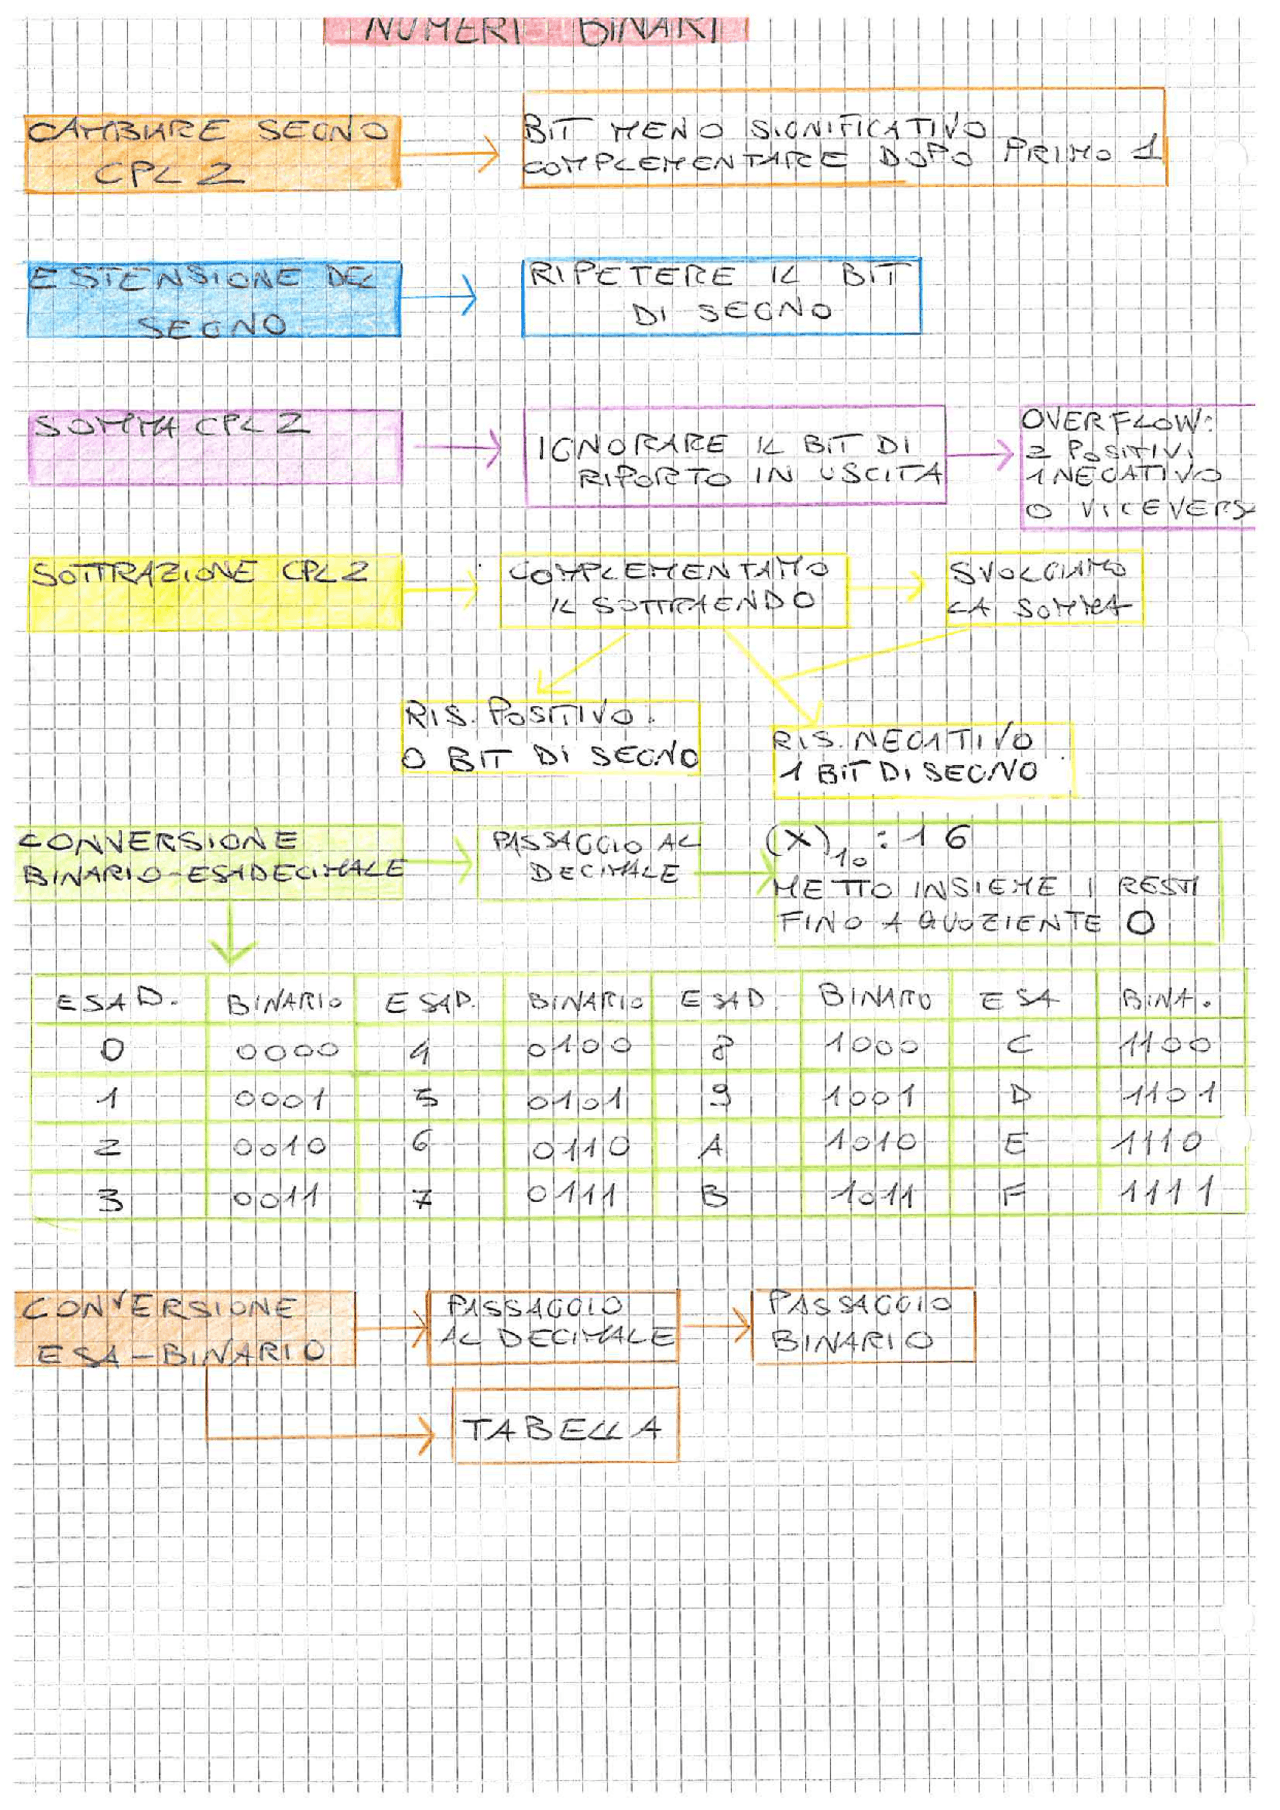 NUMERI BINARI
CAMBIARE SEGNO
CPL 2
BIT MENO SIGNIFICATIVO
COMPLEMENTARE DOPO PRIMO 1
ESTENSIONE DEL
SEGNO
RIPETERE IL BIT
DI SEGNO
SOMMA CPL 2
IGNORARE IL BIT DI
RIPORTO IN USCITA
OVERFLOW:
2 POSITIVI
1 NEGATIVO
O VICEVERSA
SOTTRAZIONE CPL 2
COMPLEMENTIAMO
IL SOTTRAENDO
SVOLGIAMO
LA SOMMA
RIS. POSITIVO.
0 BIT DI SEGNO
RIS. NEGATIVO
1 BIT DI SEGNO
CONVERSIONE
BINARIO-ESADECIMALE
PASSAGGIO AL
DECIMALE
(X)10 : 16
METTO INSIEME I RESTI
FINO A QUOZIENTE 0
ESAD. BINARIO ESAD. BINARIO ESAD. BINARO ESA BINA.
0 0000 4 0100 8 1000 C 1100
1 0001 5 0101 9 1001 D 1101
2 0010 6 0110 A 1010 E 1110
3 0011 7 0111 B 1011 F 1111
CONVERSIONE
ESA-BINARIO
PASSAGGIO
AL DECIMALE
PASSAGGIO
BINARIO
TABELLA